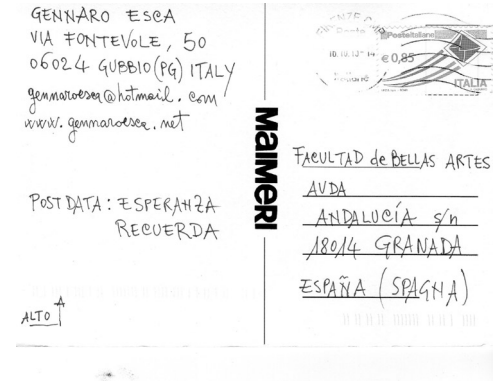 GENNARO ESCA
VIA FONTEVOLE, 50
06024 GUBBIO (PG) ITALY
gennaroesca@hotmail.com
www.gennaroesca.net
POST DATA: ESPERANZA
RECUERDA
ALTO
MAIMERI
Posteitaliane
18.10.13 - 14
€0,85
ITALIA
FACULTAD de BELLAS ARTES
AVDA
ANDALUCÍA s/n
18014 GRANADA
ESPAÑA (SPAGNA)